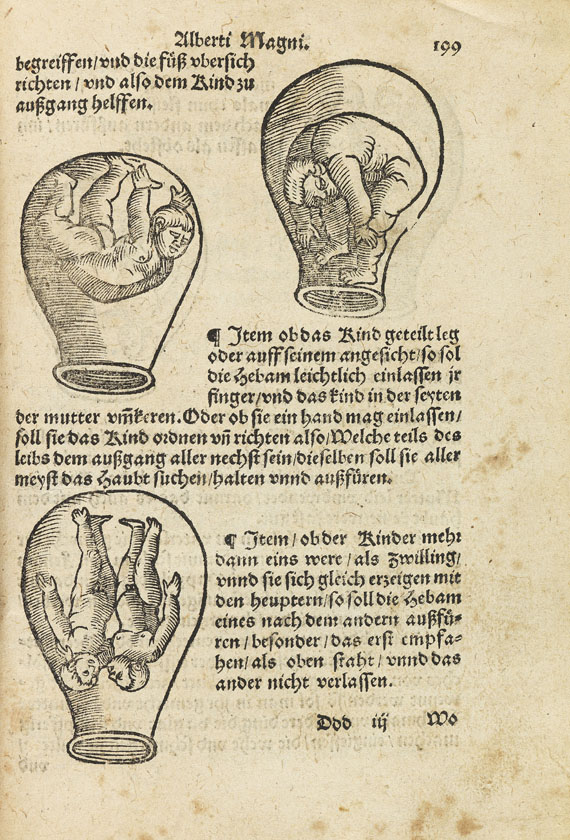 Alberti Magni. 199
begreiffen/vnd die füß vbersich
richten / vnd also dem Kind zu
außgang helffen.
¶ Item ob das Kind geteilt leg
oder auff seinem angesicht/so sol
die Hebam leichtlich einlassen jr
finger/vnd das kind in der seyten
der mutter vm̃keren. Oder ob sie ein hand mag einlassen/
soll sie das Kind ordnen vñ richten also/Welche teils des
leibs dem außgang aller nechst sein/dieselben soll sie aller
meyst das Haubt suchen/halten vnnd außfüren.
¶ Item/ob der Kinder mehr
dann eins were/als Zwilling/
vnnd sie sich gleich erzeigen mit
den heuptern/so soll die Hebam
eines nach dem andern außfü-
ren/besonder/das erst empfa-
hen/als oben staht/vnnd das
ander nicht verlassen.
Ddd iij Wo